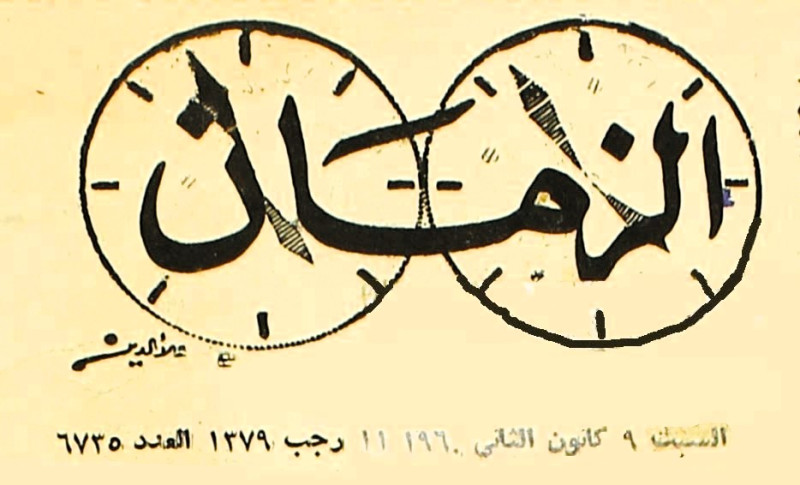 الزمان
علاء الدين
السبت ٩ كانون الثاني ١٩٦٠ ١١ رجب ١٣٧٩ العدد ٦٧٣٥